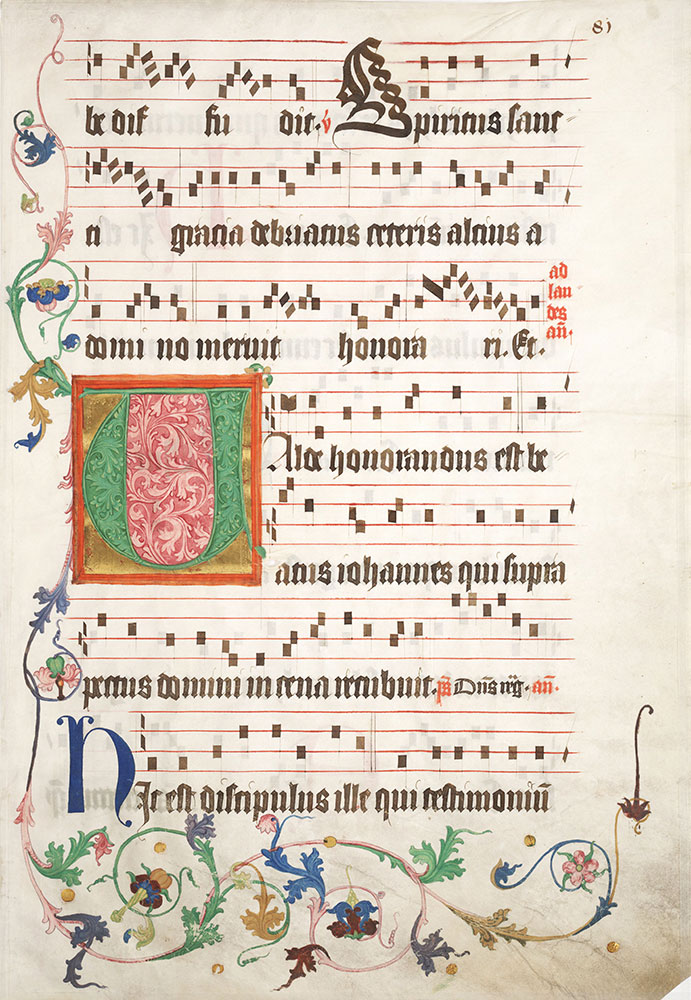 81
be dif fu dit. v Spiritus sanc
ti gracia debriatus ceteris alcius a
domi no meruit honora ri. Et.
ad
lau
des
an̄.
Valde honorandus est be
atus iohannes qui supra
pectus domini in cena recubuit. ps Dn̄s reḡ. an̄.
Hic est discipulus ille qui testimoniū